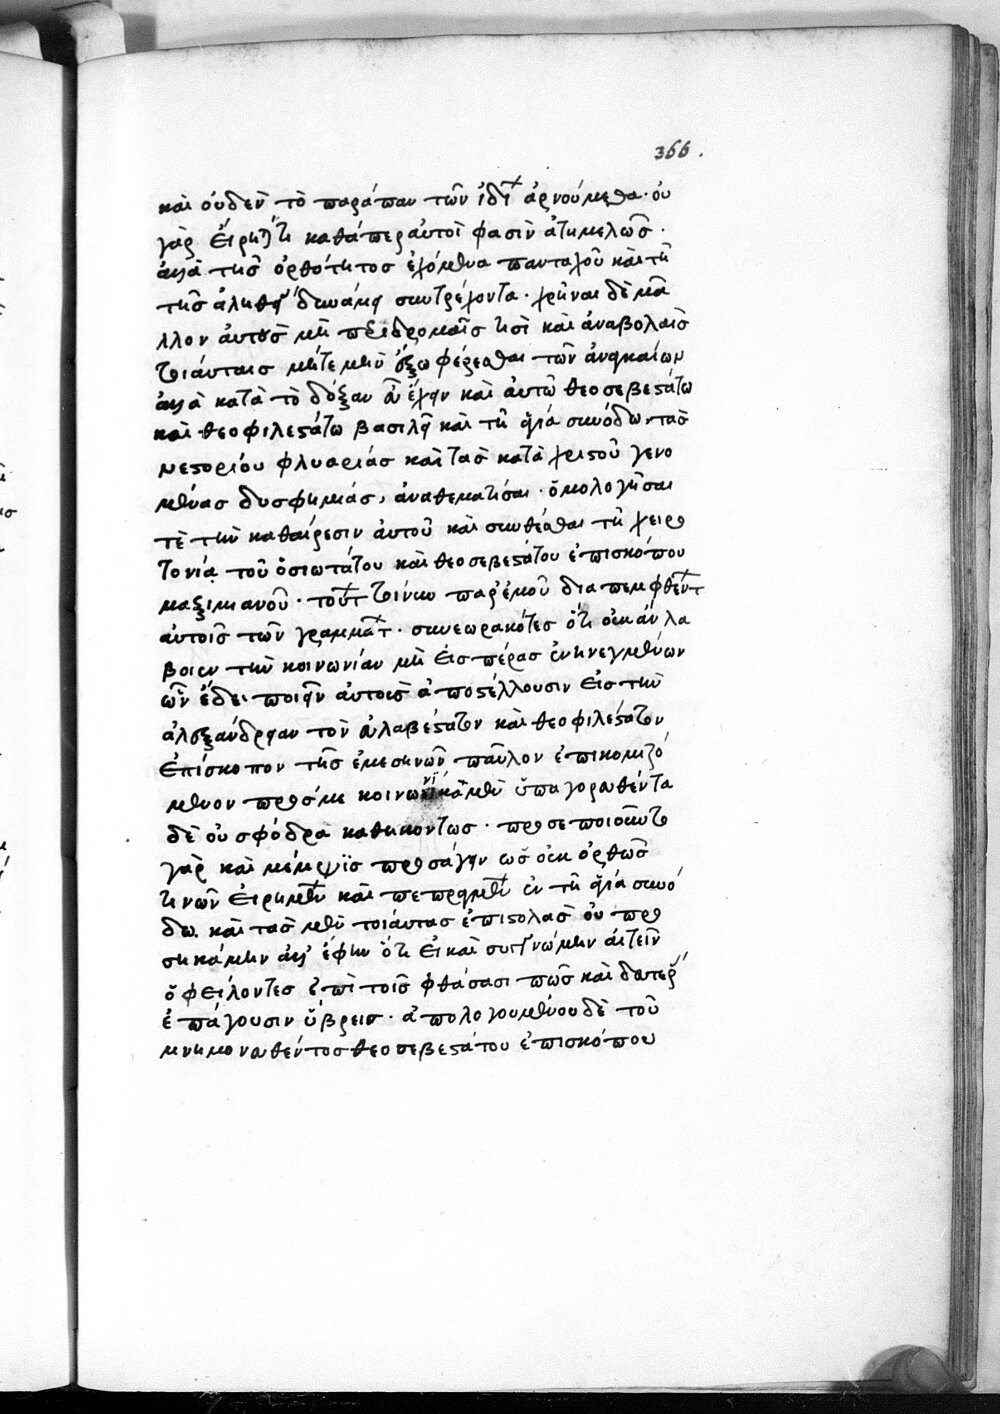 366.
καὶ οὐδὲν τὸ παράπαν τῶν ἰδί ἀρνούμεθα· οὐ
γὰρ εἴρηταί τι καθάπερ αὐτοὶ φασὶν ἀτημελῶς·
ἀλλὰ τῆς ὀρθότητος ἐχόμενα πανταχοῦ καὶ τῆ
τῆς ἀληθείας δυνάμει συντρέχοντα· χρῆναι δὲ μᾶ
λλον αὐτοὺς μὴ περιδρομαῖς τισὶ καὶ ἀναβολαῖς
τοιάυταις μήτε μὴν ἔξω φέρεσθαι τῶν ἀναγκαίων
ἀλλὰ κατὰ τὸ δόξαν εὖ ἔχειν καὶ αὐτῶ θεοσεβεστάτω
καὶ θεοφιλεστάτω βασιλεῖ καὶ τῆ ἁγία συνόδω· τὰς
νεστορίου φλυαρίας καὶ τὰς κατὰ χριστοῦ γενο
μένας δυσφημίας, ἀναθεματίσαι· ὁμολογῆσαι
τὲ τὴν καθαίρεσιν αὐτοῦ καὶ συνθέσθαι τῆ χειρο
τονία τοῦ ὁσιωτάτου καὶ θεοσεβεστάτου ἐπισκόπου
μαξιμιανοῦ· τούτ τοίνυν παρ ἐμοῦ διαπεμφθέντ
αὐτοῖς τῶν γραμμάτ· συνεωρακότες ὅτι οὐκ ἀν λα
βοιεν τὴν κοινωνίαν μὴ εἰς πέρας ἐνηνεγμένων
ὧν ἔδει ποιεῖν αὐτοὺς ἀποστέλλουσιν εἰς τὴν
ἀλεξάνδρειαν τὸν εὐλαβέστατον καὶ θεοφιλέστατον
ἐπίσκοπον τῆς ἐμεσηνῶν παῦλον ἐπικομιζό
μενον πρός με κοινωνικὰ μὲν ὑπαγορευθέντα
δὲ οὐ σφόδρα καθηκόντως· προσεποιοῦντο
γὰρ καὶ μέμψϊς προσάγειν ὡς οὐκ ὀρθῶς
τινῶν εἰρημέν καὶ πεπραγμέν ἐν τῆ ἁγία συνό
δω· καὶ τὰς μὲν τοιάυτας ἐπιστολὰς οὐ προ
σηκάμην ἀλλ' ἔφην ὅτι εἰ καὶ συγγνώμην αἰτεῖν
ὀφείλοντες ἐπὶ τοῖς φθάσασι πῶς καὶ δευτέρ
ἐπάγουσιν ὕβρεις· ἀπολογουμένου δὲ τοῦ
μνημονευθέντος θεοσεβεστάτου ἐπισκόπου